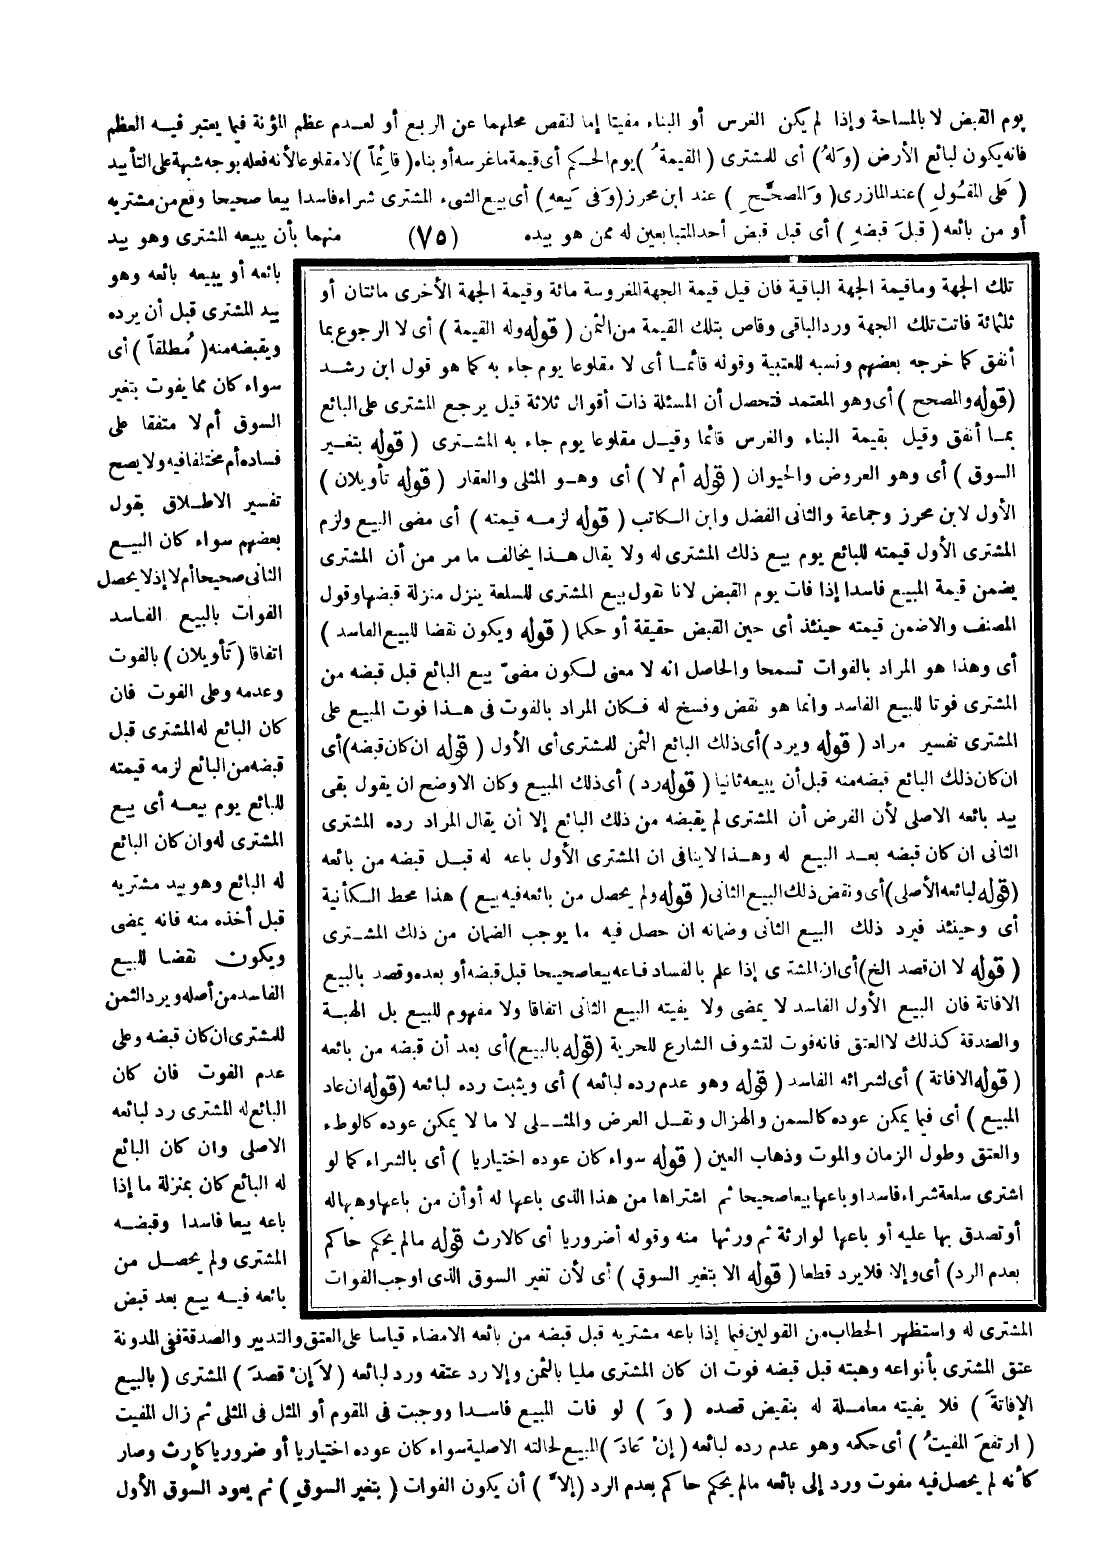 يوم القبض لا بالمساحة وإذا لم يكن الغرس أو البناء مفيتا إما لنقص محلهما عن الربع أو لعدم عظم المؤنة فيما يعتبر فيه العظم
فانه يكون لبائع الأرض (وَلهُ) أى للمشترى (القيمةُ) يوم الحكم أى قيمة ما غرسه أو بناه (قائِماً) لا مقلوعا لأنه فعله بوجه شبهة على التأبيد
(عَلَى المَقُولِ) عند المازرى (وَالمصحَّحِ) عند ابن محرز (وَفى بَيعهِ) أى بيع الشىء المشترى شراء فاسدا بيعا صحيحا وقع من مشتريه
أو من بائعه (قبلَ قبضهِ) أى قبل قبض أحد المتبايعين له ممن هو بيده (٧٥) منهما بأن يبيعه المشترى وهو بيد
بائعه أو يبيعه بائعه وهو
بيد المشترى قبل أن يرده
ويقبضه منه (مُطلقاً) أى
سواء كان مما يفوت بتغير
السوق أم لا متفقا على
فساده أم مختلفا فيه ولا يصح
تفسير الاطلاق بقول
بعضهم سواء كان البيع
الثانى صحيحا أم لا إذ لا يحصل
الفوات بالبيع الفاسد
اتفاقا (تَأويلان) بالفوت
وعدمه وعلى الفوت فان
كان البائع له المشترى قبل
قبضه من البائع لزمه قيمته
للبائع يوم بيعه أى بيع
المشترى له وان كان البائع
له البائع وهو بيد مشتريه
قبل أخذه منه فانه يمضى
ويكون نقضا للبيع
الفاسد من أصله ويرد الثمن
للمشترى ان كان قبضه وعلى
عدم الفوت فان كان
البائع له المشترى رد لبائعه
الاصلى وان كان البائع
له البائع كان بمنزلة ما إذا
باعه بيعا فاسدا وقبضه
المشترى ولم يحصل من
بائعه فيه بيع بعد قبض
تلك الجهة وما قيمة الجهة الباقية فان قيل قيمة الجهة المغروسة مائة وقيمة الجهة الأخرى مائتان أو
ثلثمائة فاتت تلك الجهة ورد الباقى وقاص بتلك القيمة من الثمن (قوله وله القيمة) أى لا الرجوع بما
أنفق كما خرجه بعضهم ونسبه للعتبية وقوله قائما أى لا مقلوعا يوم جاء به كما هو قول ابن رشد
(قوله والمصحح) أى وهو المعتمد فتحصل أن المسئلة ذات أقوال ثلاثة قيل يرجع المشترى على البائع
بما أنفق وقيل بقيمة البناء والغرس قائما وقيل مقلوعا يوم جاء به المشترى (قوله بتغير
السوق) أى وهو العروض والحيوان (قوله أم لا) أى وهو المثلى والعقار (قوله تأويلان)
الأول لابن محرز وجماعة والثانى الفضل وابن الكاتب (قوله لزمه قيمته) أى مضى البيع ولزم
المشترى الأول قيمته للبائع يوم بيع ذلك المشترى له ولا يقال هذا يخالف ما مر من أن المشترى
يضمن قيمة المبيع فاسدا إذا فات يوم القبض لانا نقول بيع المشترى للسلعة ينزل منزلة قبضها وقول
المصنف والاضمن قيمته حينئذ أى حين القبض حقيقة أو حكما (قوله ويكون نقضا للبيع الفاسد)
أى وهذا هو المراد بالفوات تسمحا والحاصل انه لا معنى لكون مضىّ بيع البائع قبل قبضه من
المشترى فوتا للبيع الفاسد وانما هو نقض وفسخ له فكان المراد بالفوت فى هذا فوت المبيع على
المشترى تفسير مراد (قوله ويرد) أى ذلك البائع الثمن للمشترى أى الأول (قوله ان كان قبضه) أى
ان كان ذلك البائع قبضه منه قبل أن يبيعه ثانيا (قوله رد) أى ذلك المبيع وكان الاوضح ان يقول بقى
بيد بائعه الاصلى لأن الفرض أن المشترى لم يقبضه من ذلك البائع إلا أن يقال المراد رده المشترى
الثانى ان كان قبضه بعد البيع له وهذا لا ينافى ان المشترى الأول باعه له قبل قبضه من بائعه
(قوله لبائعه الأصلى) أى ونقض ذلك البيع الثانى (قوله ولم يحصل من بائعه فيه بيع) هذا محط الكأنية
أى وحينئذ فيرد ذلك البيع الثانى وضمانه ان حصل فيه ما يوجب الضمان من ذلك المشترى
(قوله لا ان قصد الخ) أى ان المشترى إذا علم بالفساد فباعه بيعا صحيحا قبل قبضه أو بعده وقصد بالبيع
الافاتة فان البيع الأول الفاسد لا يمضى ولا يفيته البيع الثانى اتفاقا ولا مفهوم للبيع بل الهبة
والصدقة كذلك لا العتق فانه فوت لتشوف الشارع للحرية (قوله بالبيع) أى بعد أن قبضه من بائعه
(قوله الافاتة) أى لشرائه الفاسد (قوله وهو عدم رده لبائعه) أى ويثبت رده لبائعه (قوله ان عاد
المبيع) أى فيما يمكن عوده كالسمن والهزال ونقل العرض والمثلى لا ما لا يمكن عوده كالوطء
والعتق وطول الزمان والموت وذهاب العين (قوله سواء كان عوده اختياريا) أى بالشراء كما لو
اشترى سلعة شراء فاسدا وباعها بيعا صحيحا ثم اشتراها من هذا الذى باعها له أو أن من باعها وهبها له
أو تصدق بها عليه أو باعها لوارثة ثم ورثها منه وقوله أضروريا أى كالارث قوله مالم يحكم حاكم
بعدم الرد) أى وإلا فلا يرد قطعا (قوله الا بتغير السوق) أى لأن تغير السوق الذى اوجب الفوات
المشترى له واستظهر الحطاب من القولين فيما إذا باعه مشتريه قبل قبضه من بائعه الامضاء قياسا على العتق والتدبير والصدقة ففى المدونة
عتق المشترى بأنواعه وهبته قبل قبضه فوت ان كان المشترى مليا بالثمن وإلا رد عتقه ورد لبائعه (لاَ إنْ قصدَ) المشترى (بالبيع
الإفاتةَ) فلا يفيته معاملة له بنقيض قصده (وَ) لو فات المبيع فاسدا ووجبت فى المقوم أو المثل فى المثلى ثم زال المفيت
(ارتفعَ المفيتُ) أى حكمه وهو عدم رده لبائعه (إنْ عَادَ) المبيع لحالته الاصلية سواء كان عوده اختياريا أو ضروريا كإرث وصار
كأنه لم يحصل فيه مفوت ورد إلى بائعه مالم يحكم حاكم بعدم الرد (إلاَّ) أن يكون الفوات (بتغير السوقِ) ثم يعود السوق الأول